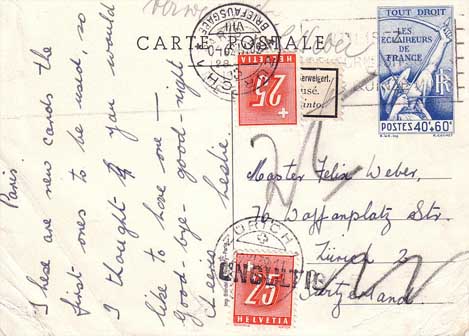 CARTE POSTALE
TOUT DROIT
LES
ECLAIREURS
DE
FRANCE
RF
POSTES 40c+60c
BRIEFAUSGABE
ZÜRICH
25
HELVETIA
verweigert.
Paris.
These are new cards the
first ones to be used so
I thought you would
like to have one —
Good-bye - good-night
Leslie
Master Felix Weber,
70 Waffenplatz Str.
Zürich 2
Switzerland.
ZÜRICH
UNGÜLTIG
25
HELVETIA